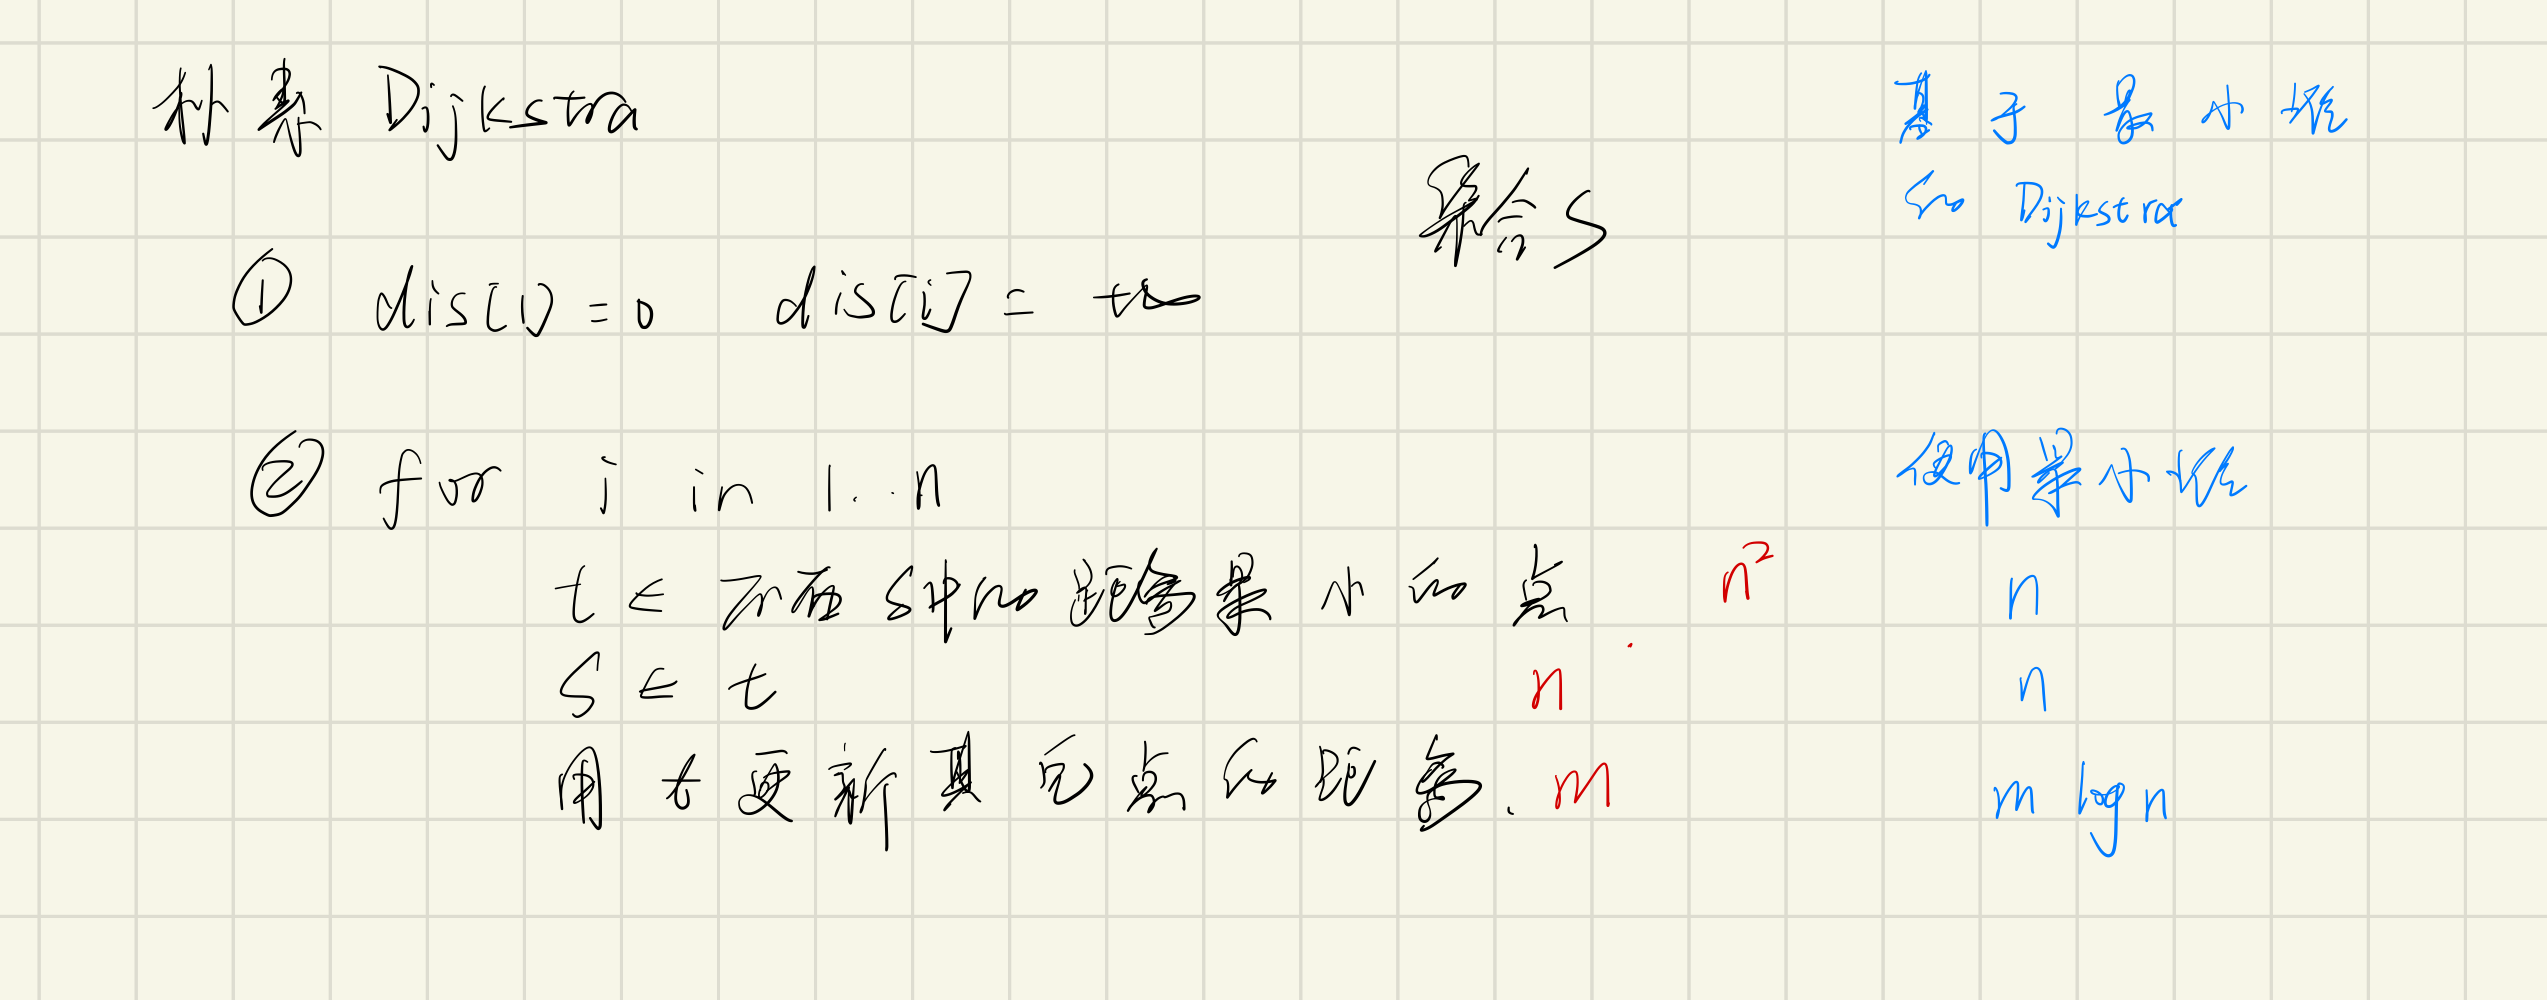 朴素 Dijkstra
基于最小堆
的 Dijkstra
集合S
① dis[1]=0 dis[i]=+∞
② for i in 1..n
使用最小堆
t ← 不在S中的距离最小的点 n² n
S ← t n n
用t更新其它点的距离. m m log n